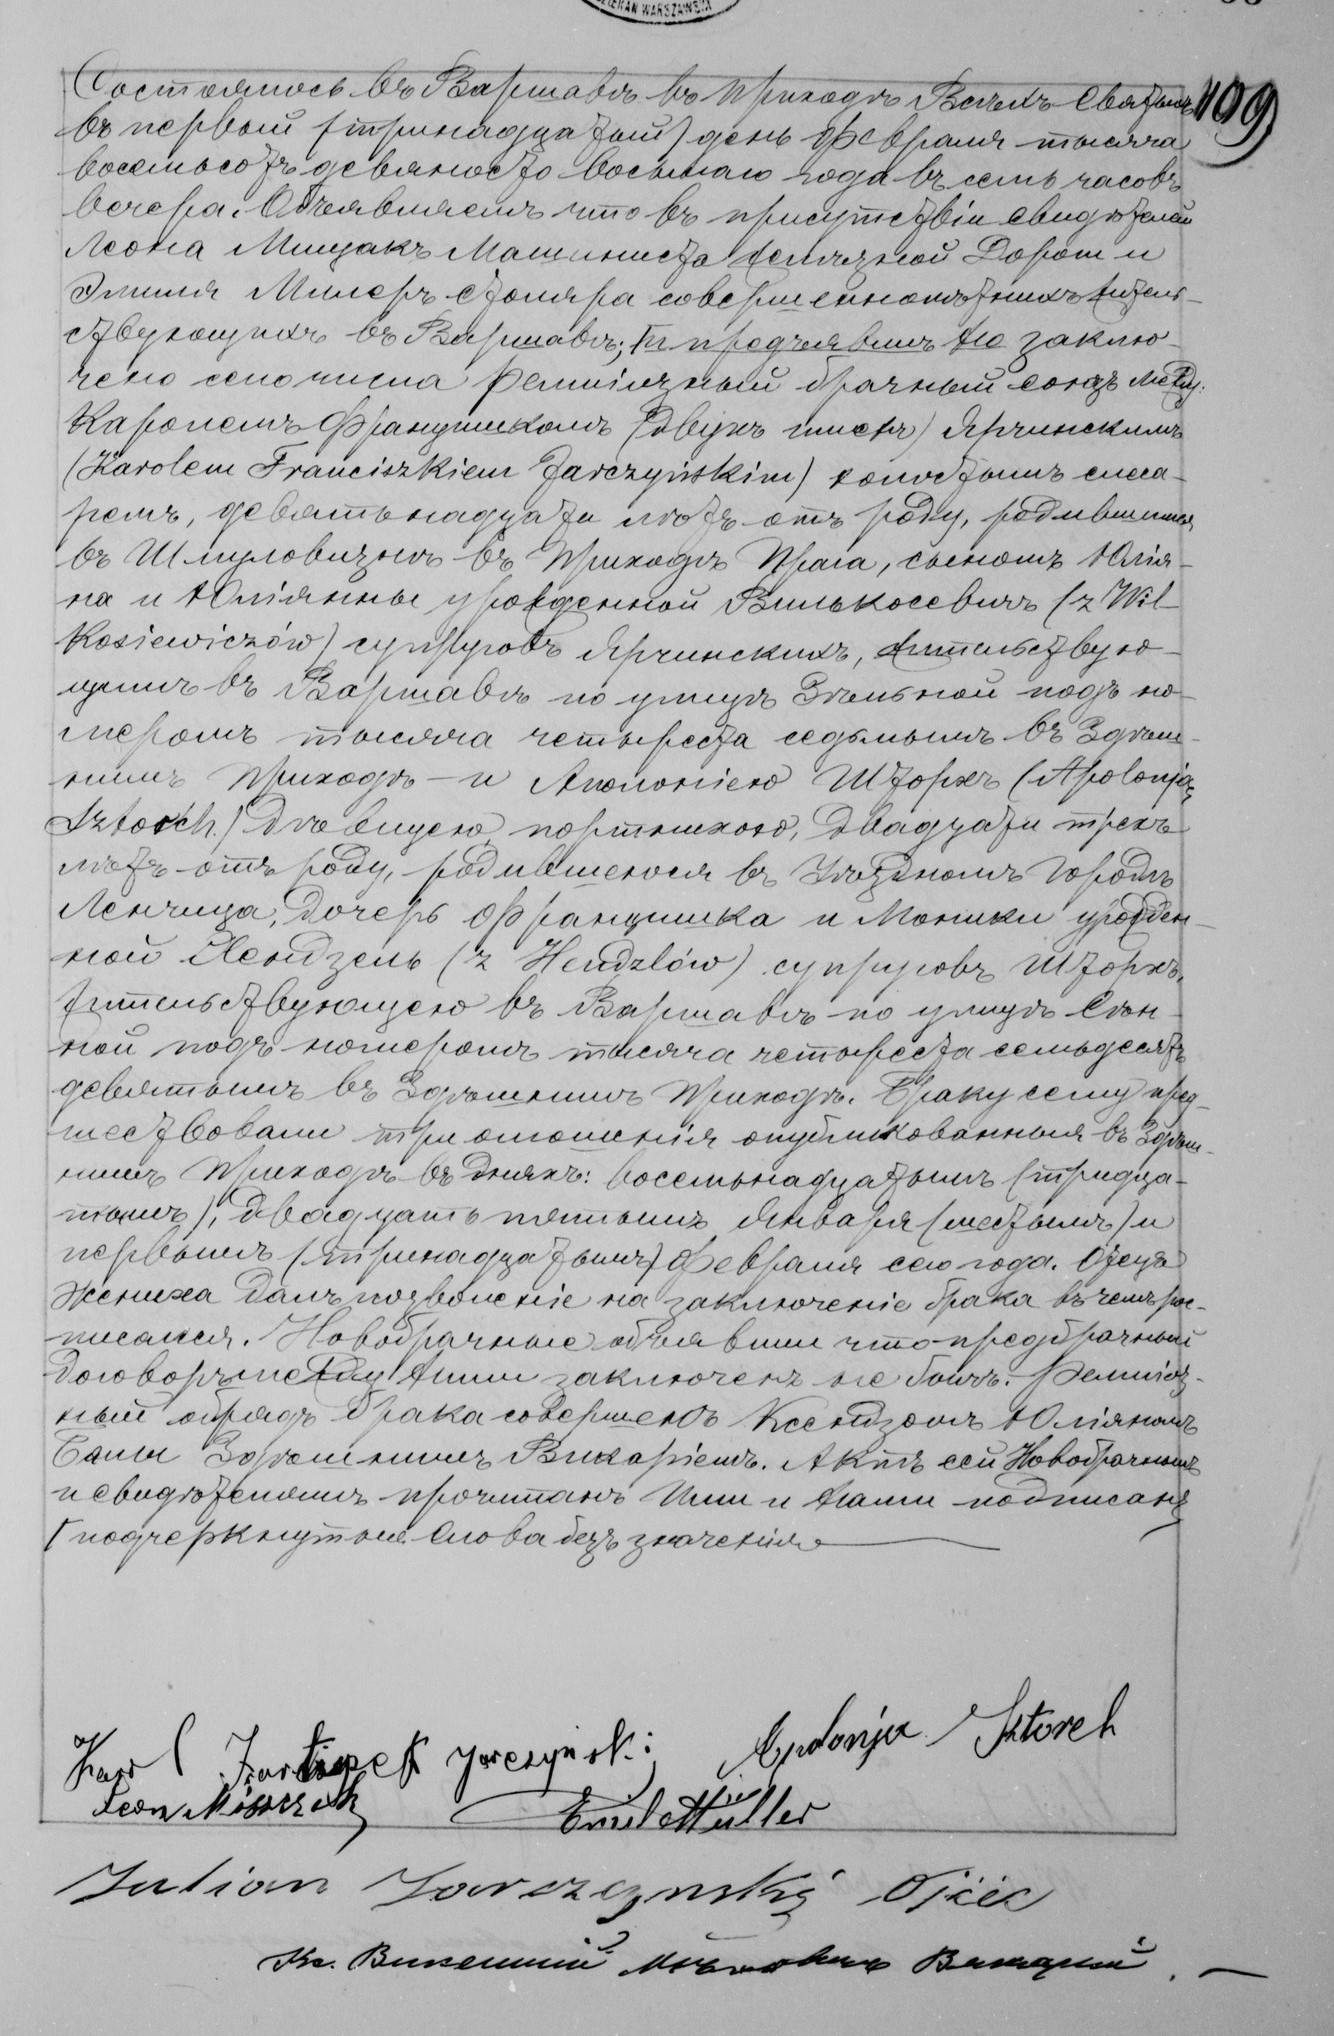 WARSZAWSKA
109
Состоялось въ Варшавѣ въ приходѣ Всѣхъ Святыхъ
въ первый (тринадцатый) день Февраля тысяча
восемьсотъ девяносто восьмаго года въ семь часовъ
вечера. Объявляемъ что въ присутствіи свидѣтелей
Леона Мищакъ Машиниста желѣзной Дороги и
Эмиля Милеръ столяра совершеннолѣтнихъ житель-
ствующихъ въ Варшавѣ; заклю-
чено сего числа религіозный брачный союзъ между:
Каролемъ Францишкомъ (двухъ именъ) Ярчинскимъ
(Karolem Franciszkiem Jarczyńskim) холостымъ слеса-
ремъ, девятьнадцати лѣтъ отъ роду, родившимся
въ Шмуловизнѣ въ приходѣ Прага, сыномъ Юлія-
на и Юліянны урожденной Вилькосевичъ (z Wil-
kosiewiczów) супруговъ Ярчинскихъ, жительствую-
щимъ въ Варшавѣ по улицѣ Згельной подъ но-
меромъ тысяча четыреста седьмымъ въ Здѣш-
нимъ приходѣ – и Аполоніею Шторхъ (Apolonją
Sztorch) Дѣвицею, портнихою, Двадцати трехъ
лѣтъ отъ роду, родившеюся въ Уѣздномъ Городѣ
Ленчица, дочерь Францишка и Моники урожден-
ной Хендзель (z Hendzlów) супруговъ Шторхъ,
жительствующею въ Варшавѣ по улицѣ Сѣн-
ной подъ номеромъ тысяча четыреста семьдесятъ
девятымъ въ Здѣшнимъ приходѣ. Браку сему пред-
шествовали три оглошенія опубликованныя въ Здѣш-
нимъ приходѣ въ дняхъ: восемьнадцатымъ (тридца-
тымъ), двадцать пятымъ Января (шестымъ) и
первымъ (тринадцатымъ) Февраля сего года. Отецъ
Жениха далъ позволеніе на заключеніе брака въ чемъ рос-
писался. Новобрачные объявили что предбрачный
договоръ между ними заключенъ не былъ. Религіоз-
ный обрядъ брака совершенъ Ксендзомъ Юліяномъ
Здѣшнимъ Викаріемъ. Актъ сей Новобрачнымъ
и свидѣтелямъ прочитанъ Ими и Нами подписанъ
подчеркнутыя слова безъ значенія
Karol Jarczynski Apolonja Sztorch
Leon Miszczak Emil Müller
Julian Jarczynski Ojciec
Кс.